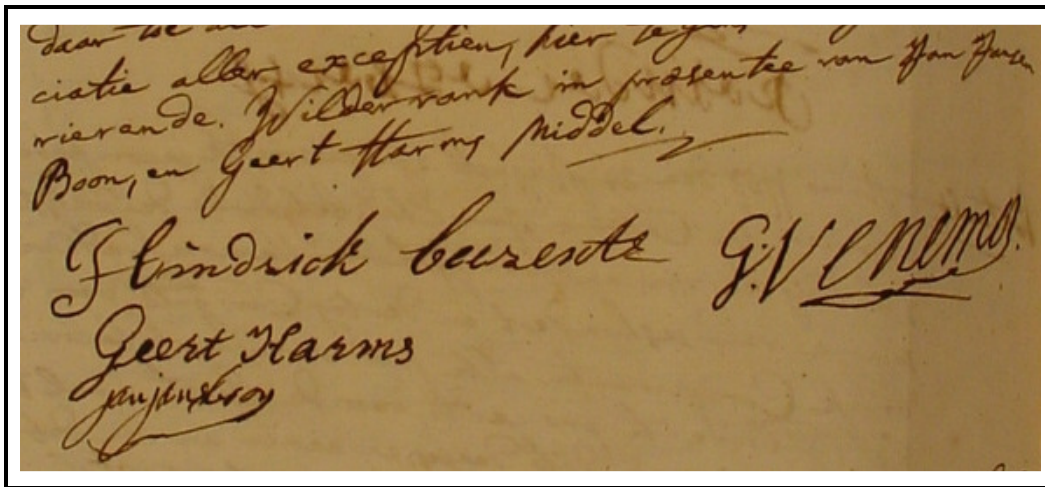 daar toe
ciatie aller exceptien, hier tegen
rierende. Wilderrank in præsentie van Jan Jansen
Boon, en Geert Harms Middel.
Hindrick beerents G. Venema.
Geert Harms
jan jans boon